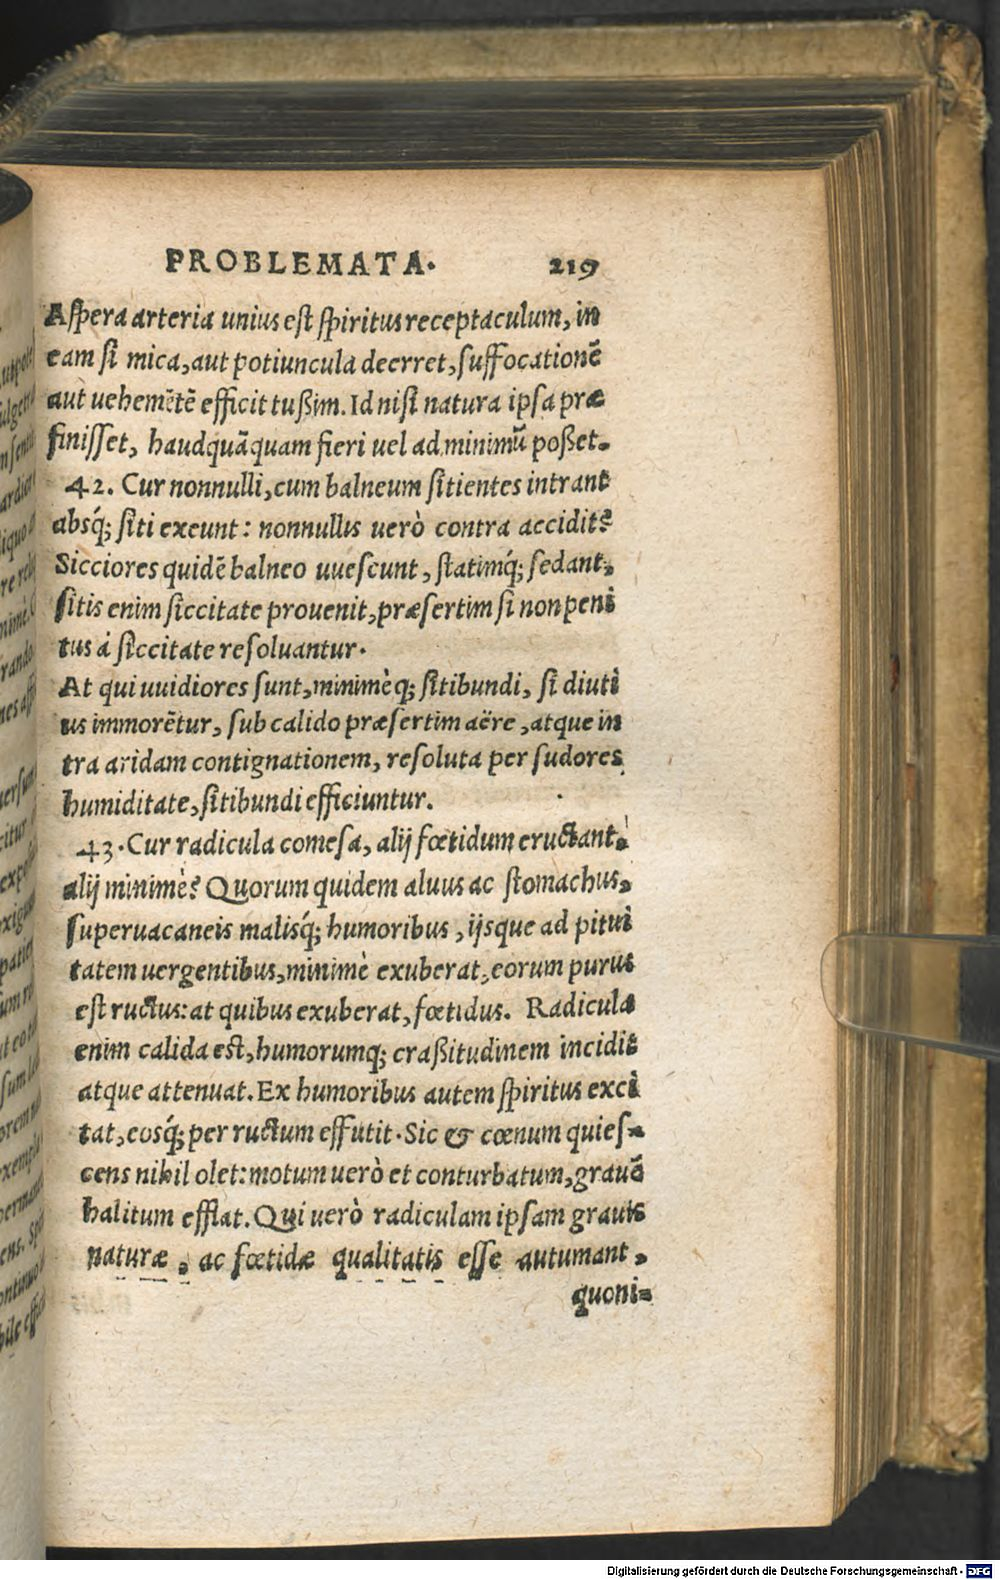 PROBLEMATA. 219
Aſpera arteria unius eſt ſpiritus receptaculum, in
eam ſi mica, aut potiuncula deerret, ſuffocationẽ
aut uehemẽtẽ efficit tußim. Id niſi natura ipſa præ
finiſſet, haudquãquam fieri uel ad minimũ poßet.
42. Cur nonnulli, cum balneum ſitientes intrant
abſq́; ſiti exeunt: nonnullis uerò contra accidit?
Sicciores quidẽ balneo uueſcunt, ſtatimq́; ſedant,
ſitis enim ſiccitate prouenit, præſertim ſi non peni
tus à ſiccitate reſoluantur.
At qui uuidiores ſunt, minimèq; ſitibundi, ſi diuti
us immorẽtur, ſub calido præſertim aëre, atque in
tra aridam contignationem, reſoluta per ſudores
humiditate, ſitibundi efficiuntur.
43. Cur radicula comeſa, alij fœtidum eructant,
alij minimè? Quorum quidem aluus ac ſtomachus,
ſuperuacaneis malisq́; humoribus, ijsque ad pitui
tatem uergentibus, minimè exuberat, eorum purus
eſt ructus: at quibus exuberat, fœtidus. Radicula
enim calida est, humorumq; craßitudinem incidit
atque attenuat. Ex humoribus autem ſpiritus exci
tat, eosq́; per ructum effutit. Sic & cœnum quieſ-
cens nihil olet: motum uerò et conturbatum, grauẽ
halitum efflat. Qui uerò radiculam ipſam grauis
naturæ, ac fœtidæ qualitatis eſſe autumant,
quoni-
Digitalisierung gefördert durch die Deutsche Forschungsgemeinschaft - DFG